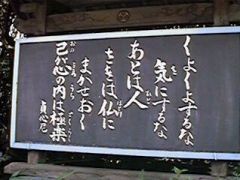 くよくよするな
気にするな
あとは人
さきは仏に
まかせおく
己が心の内は極楽
貞心尼